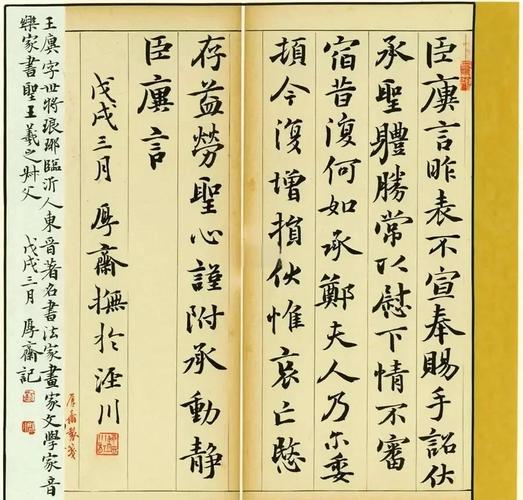 臣廙言昨表不宣奉賜手詔伏
承聖體勝常以慰下情不審
宿昔復何如承鄭夫人乃尒委
頓今復增損伏惟哀亡愍
存益勞聖心謹附承動靜
臣廙言
戊戌三月厚齋撫於涇川
厚齋製箋
王廙字世將琅琊臨沂人東晉著名書法家畫家文學家音
樂家書聖王羲之叔父
戊戌三月厚齋記